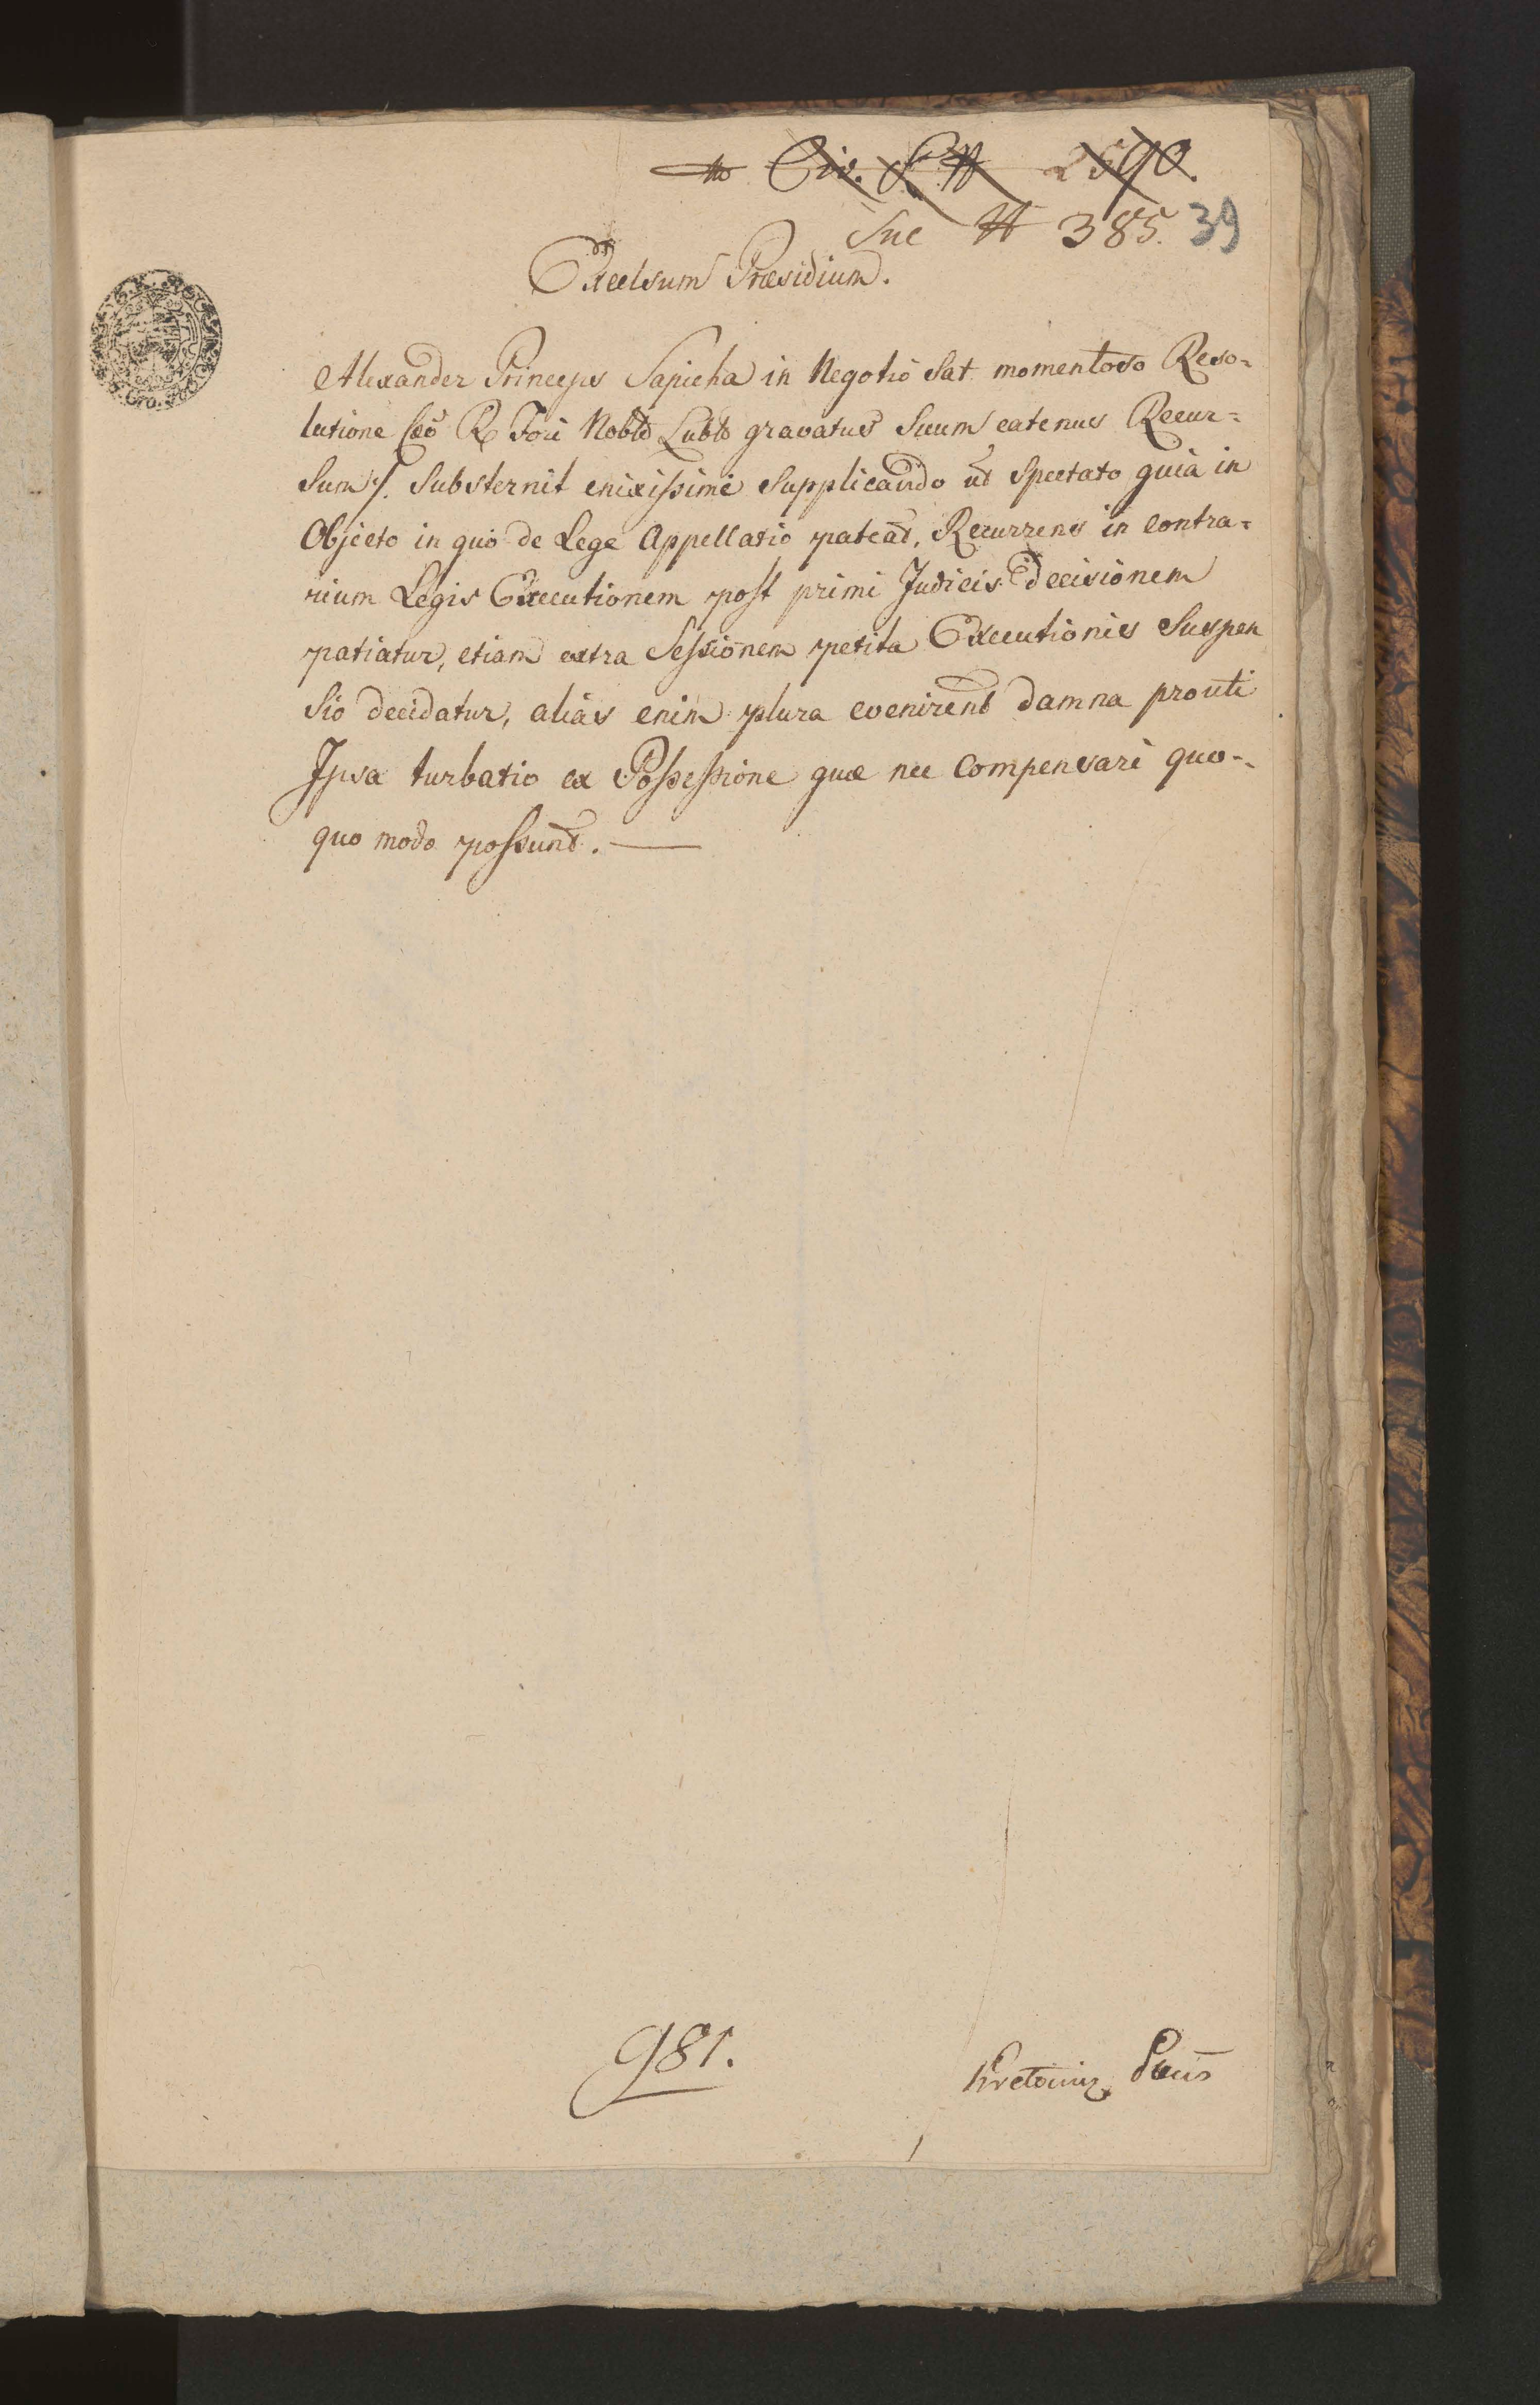 Civ. 2590.
Suc # 385. 39
Excelsum Præsidium.
Alexander Princeps Sapieha in Negotio Sat momentoso Reso=
lutione Cæo R Fori Noblō Lublō gravatus Suum eatenus Recur=
Sum ⁒ Substernit enixissime Supplicando ut Spectato quia in
Objecto in quo de Lege Appellatio pateat, Recurrens in contra=
rium Legis Executionem post primi Judicis Decisionem
patiatur, etiam extra Sessionem petita Executionis Suspen
Sio decidatur, aliàs enim plura evenirent damna prouti
Ipsa turbatio ex Possessione quæ nec Compensari quo-
quo modo possunt. —
981.